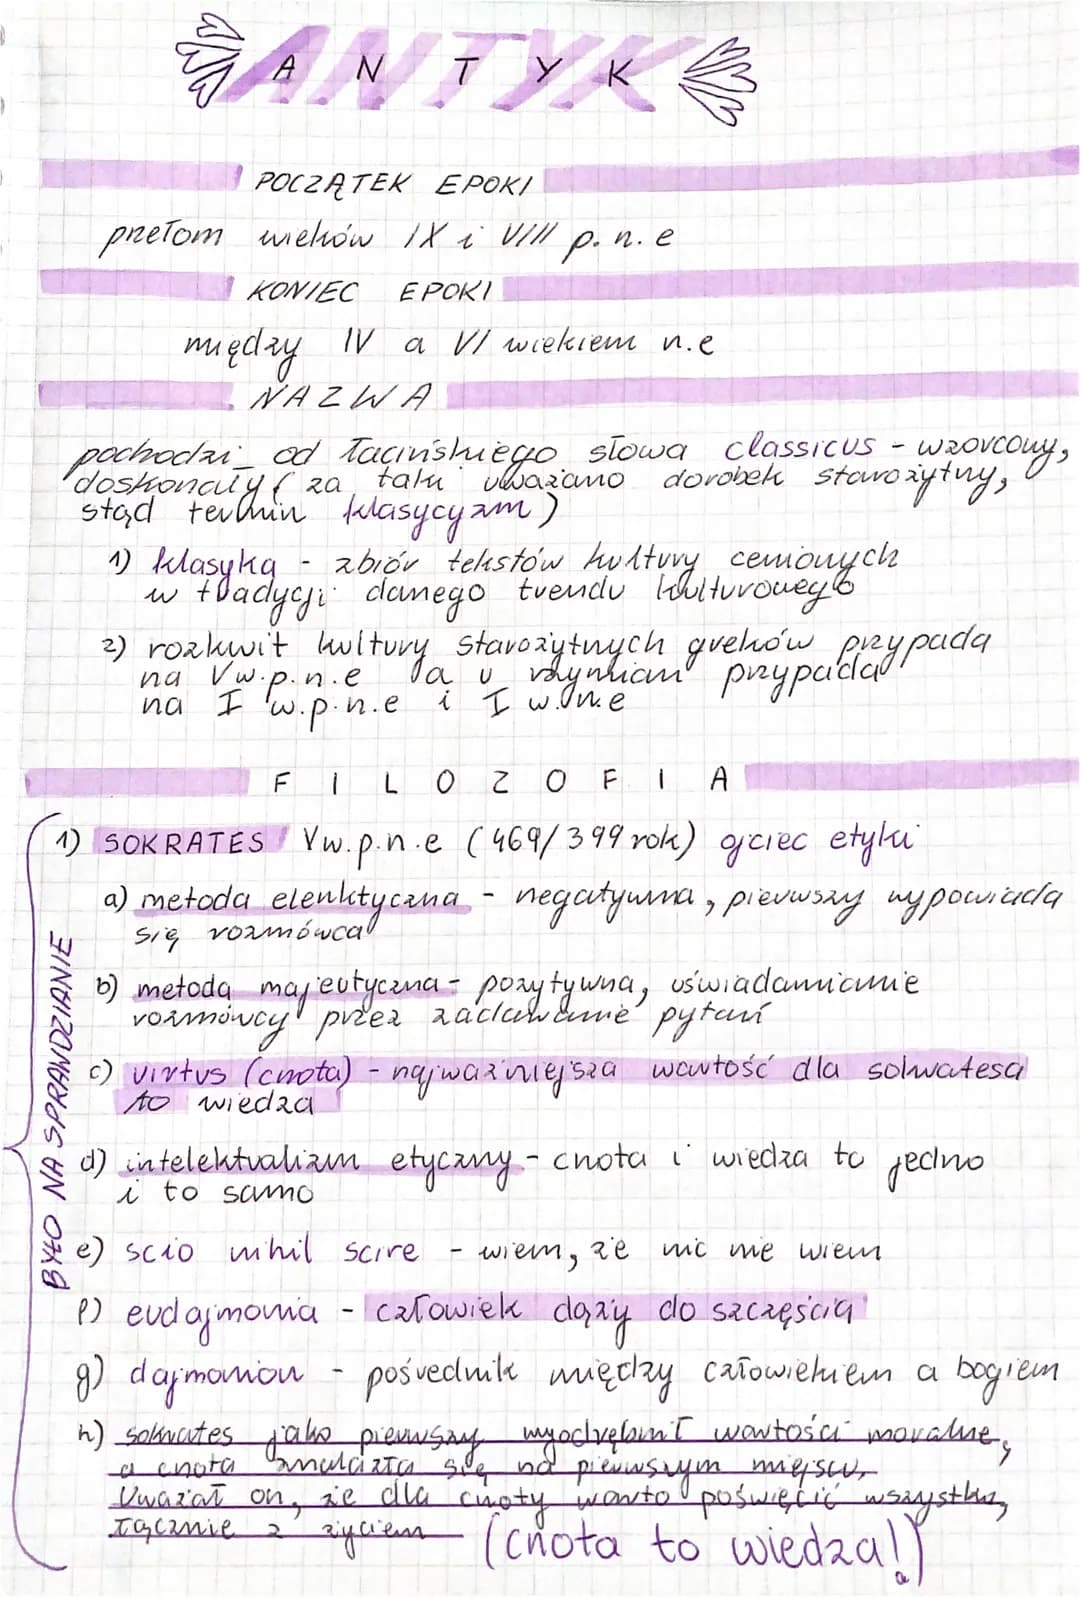 ANTYK
POCZĄTEK EPOKI
przełom wieków IX i VIII p.n.e
KONIEC EPOKI
między IV a VI wiekiem n.e
NAZWA
pochodzi od łacińskiego słowa classicus - wzorcowy,
doskonały (za taki uważano dorobek starożytny,
stąd termin klasycyzm)
1) klasyka - zbiór tekstów kultury cenionych
w tradycji danego trendu kulturowego
2) rozkwit kultury starożytnych greków przypada
na V w.p.n.e a u rzymian przypada
na I w.p.n.e i I w.n.e
FILOZOFIA
1) SOKRATES V w.p.n.e (469/399 rok) ojciec etyki
a) metoda elenktyczna - negatywna, pierwszy wypowiada
się rozmówca
b) metoda majeutyczna - pozytywna, uświadamianie
rozmówcy przez zadawanie pytań
c) virtus (cnota) - najważniejsza wartość dla sokratesa
to wiedza
d) intelektualizm etyczny - cnota i wiedza to jedno
i to samo
e) scio nihil scire - wiem, że nic nie wiem
f) eudajmonia - człowiek dąży do szczęścia
g) dajmonion - pośrednik między człowiekiem a bogiem
h) sokrates jako pierwszy wyodrębnił wartości moralne,
a cnota znalazła się na pierwszym miejscu,
Uważał on, że dla cnoty warto poświęcić wszystko,
łącznie z życiem (cnota to wiedza!)
BYŁO NA SPRAWDZIANIE